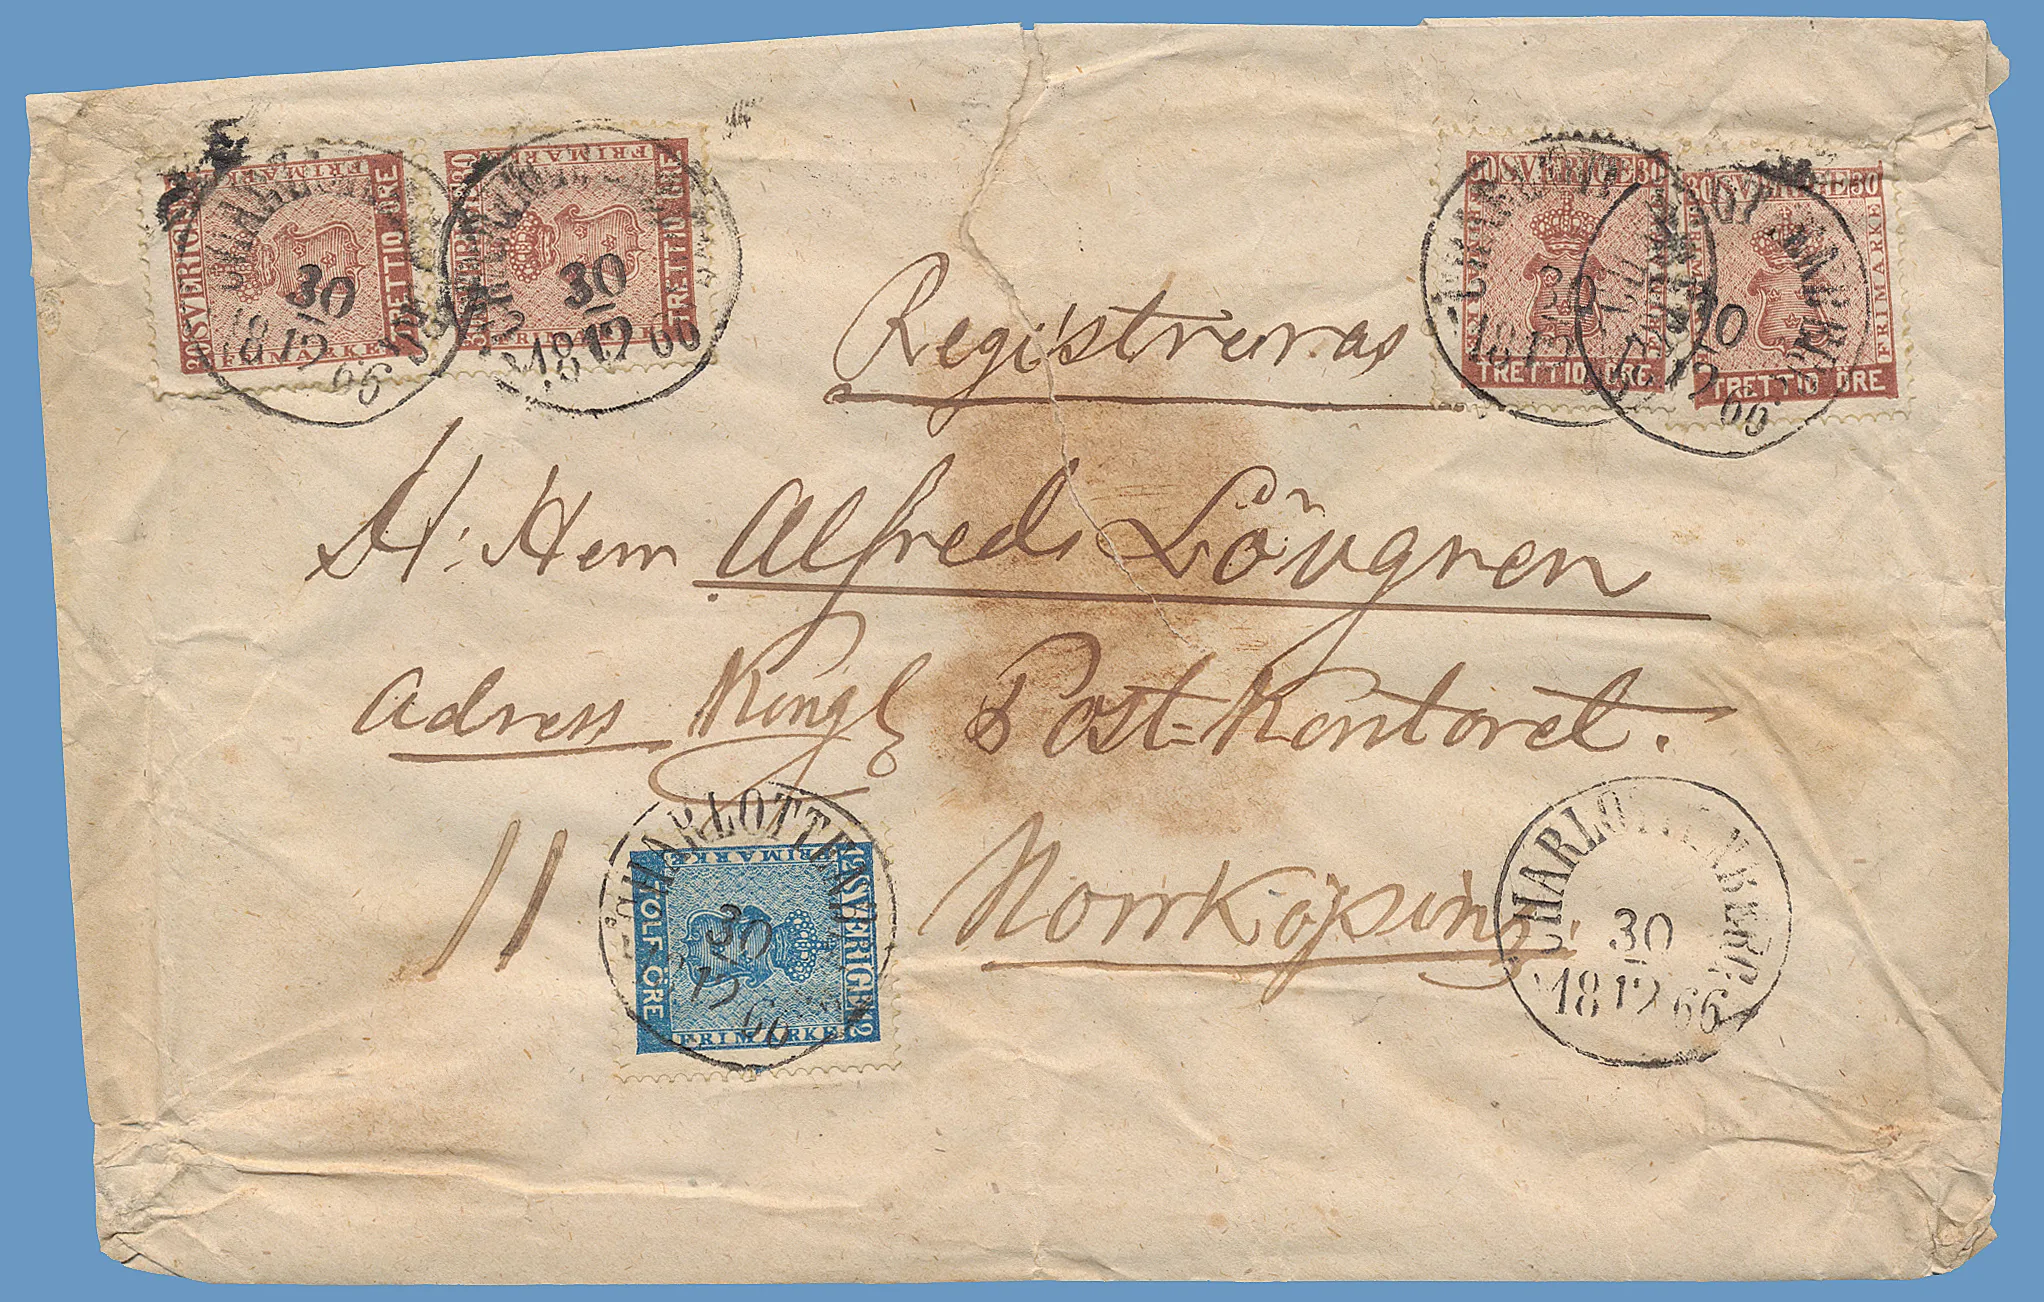 30 SVERIGE 30
FRIMARKE
FRIMARKE
TRETTIO ÖRE
30
18 12 66
30 SVERIGE 30
FRIMARKE
FRIMARKE
TRETTIO ÖRE
30
18 12 66
30 SVERIGE 30
FRIMARKE
FRIMARKE
TRETTIO ÖRE
30
18 12 66
30 SVERIGE 30
FRIMARKE
FRIMARKE
TRETTIO ÖRE
30
18 12 66
Registreras
H: Herr Alfred Lövgren
adress Kongl Post=Kontoret.
Norrköping.
12 SVERIGE 12
FRIMARKE
FRIMARKE
TOLF ÖRE
CHARLOTTENBERG
30
12
66
CHARLOTTENBERG
30
18 12 66